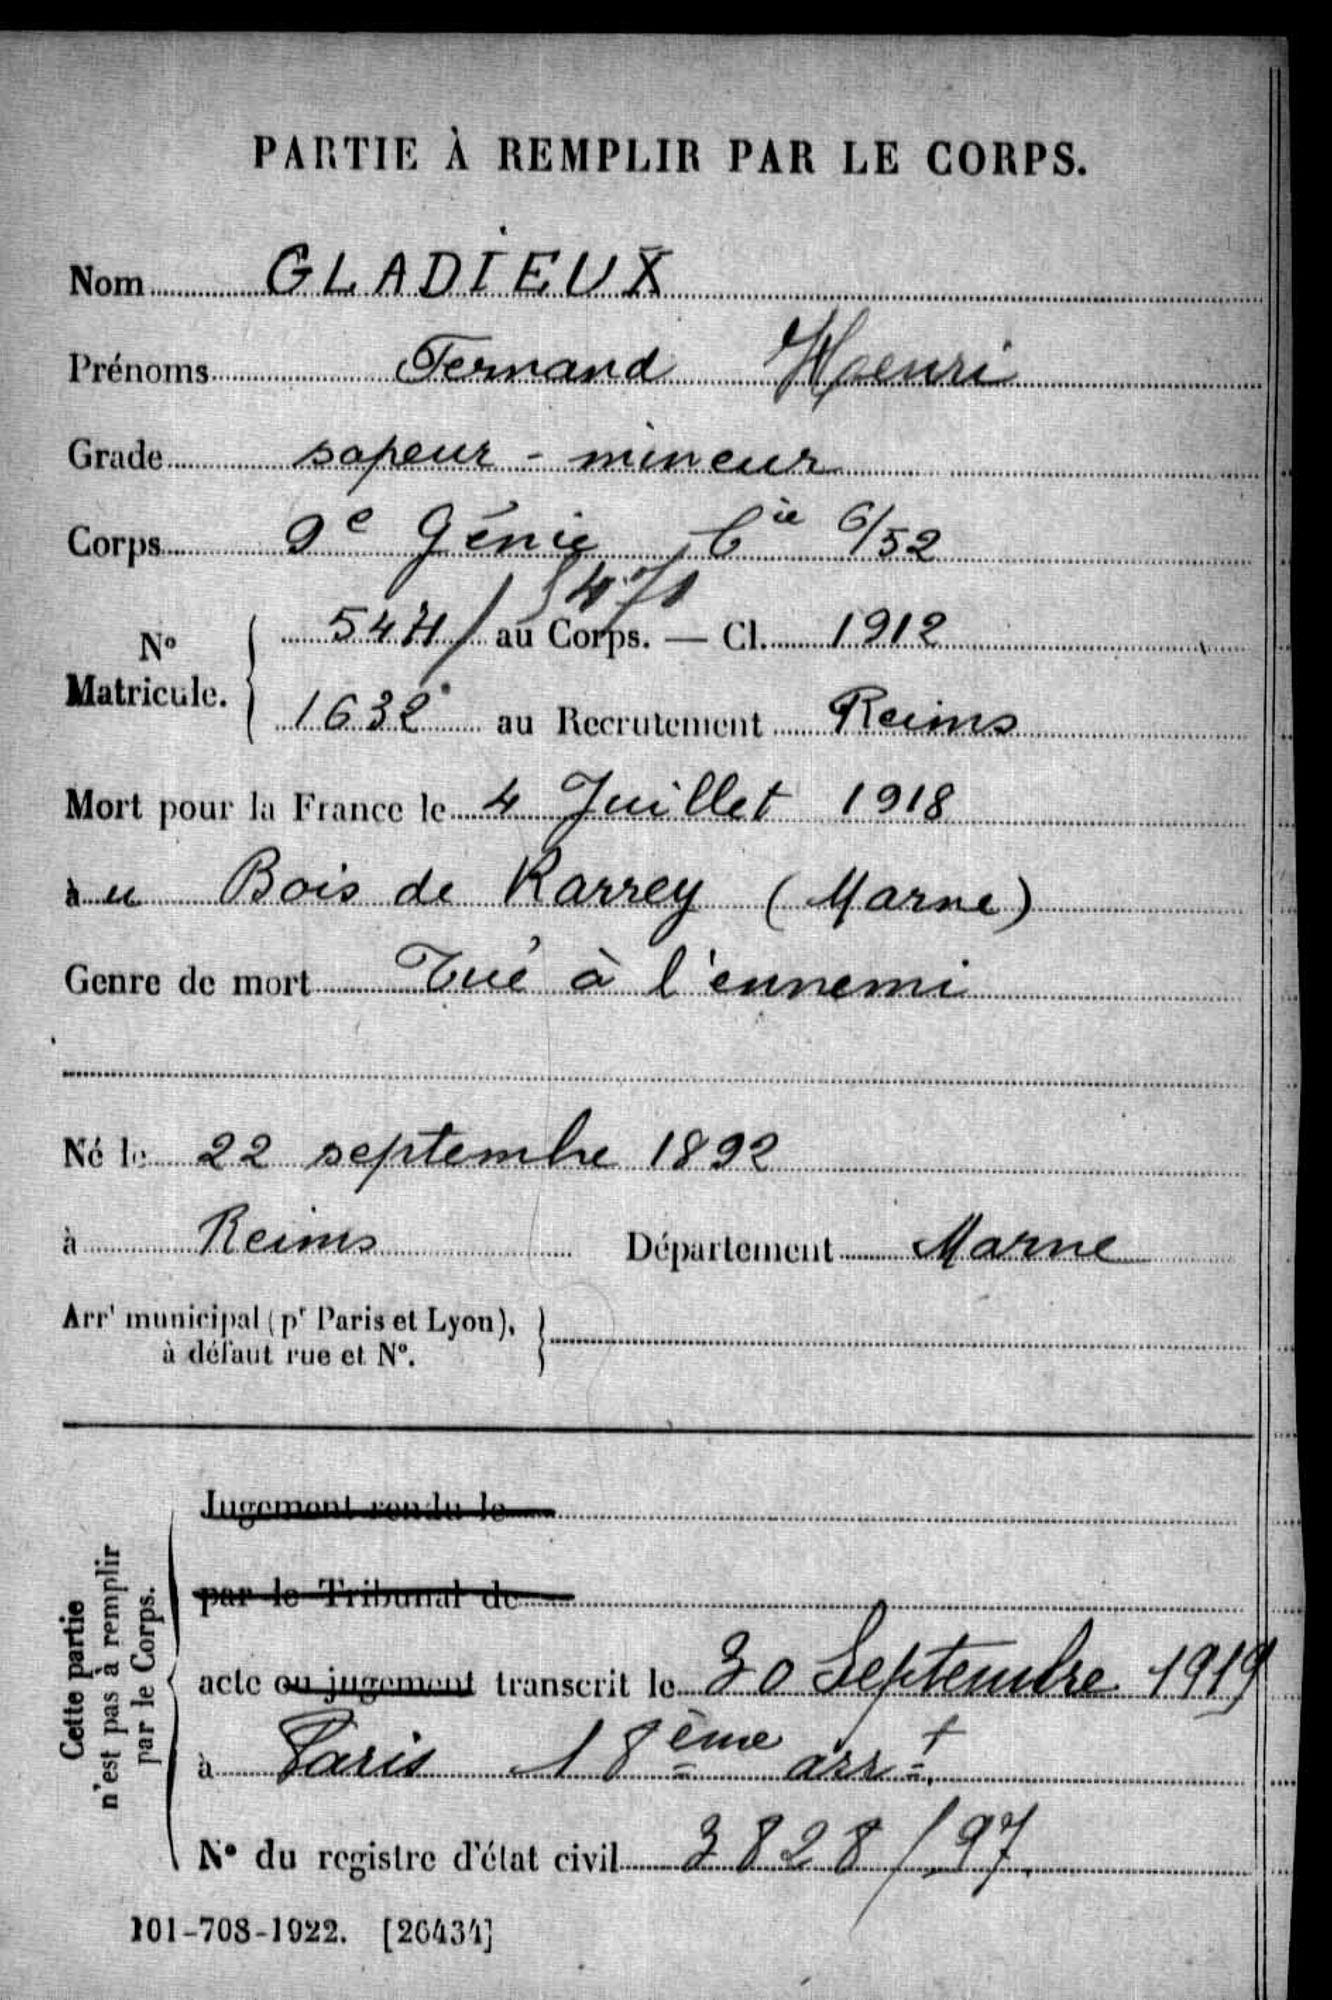 PARTIE À REMPLIR PAR LE CORPS.
Nom GLADIEUX
Prénoms Fernand Henri
Grade sapeur - mineur
Corps 9e Génie Cie 6/52
5471
No Matricule. 5471 / au Corps. — Cl. 1912
1632 au Recrutement Reims
Mort pour la France le 4 Juillet 1918
à u Bois de Rarrey (Marne)
Genre de mort Tué à l'ennemi
Né le 22 septembre 1892
à Reims Département Marne
Arrt municipal (pr Paris et Lyon),
à défaut rue et No.
Cette partie
n'est pas à remplir
par le Corps.
Jugement rendu le
par le Tribunal de
acte ou jugement transcrit le 30 Septembre 1919
à Paris 18ème arrt.
No du registre d'état civil 3828/97
101-708-1922. [26434]